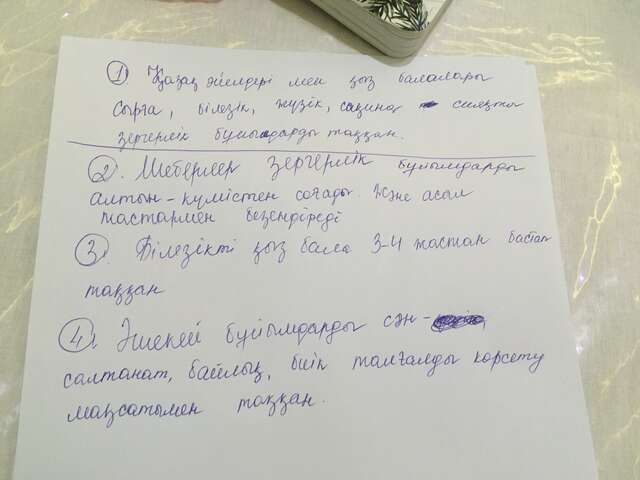 1) Қазақ әйелдері мен қыз балалары
сырға, білезік, жүзік, сақина сияқты
зергерлік бұйымдарды таққан.
2. Шеберлер зергерлік бұйымдарды
алтын-күмістен соғады. Және асыл
тастармен безендіреді
3. Білезікті қыз бала 3-4 жастан бастап
таққан
4. Әшекей бұйымдарды сән-
салтанат, байлық, биік талғамды көрсету
мақсатымен таққан.